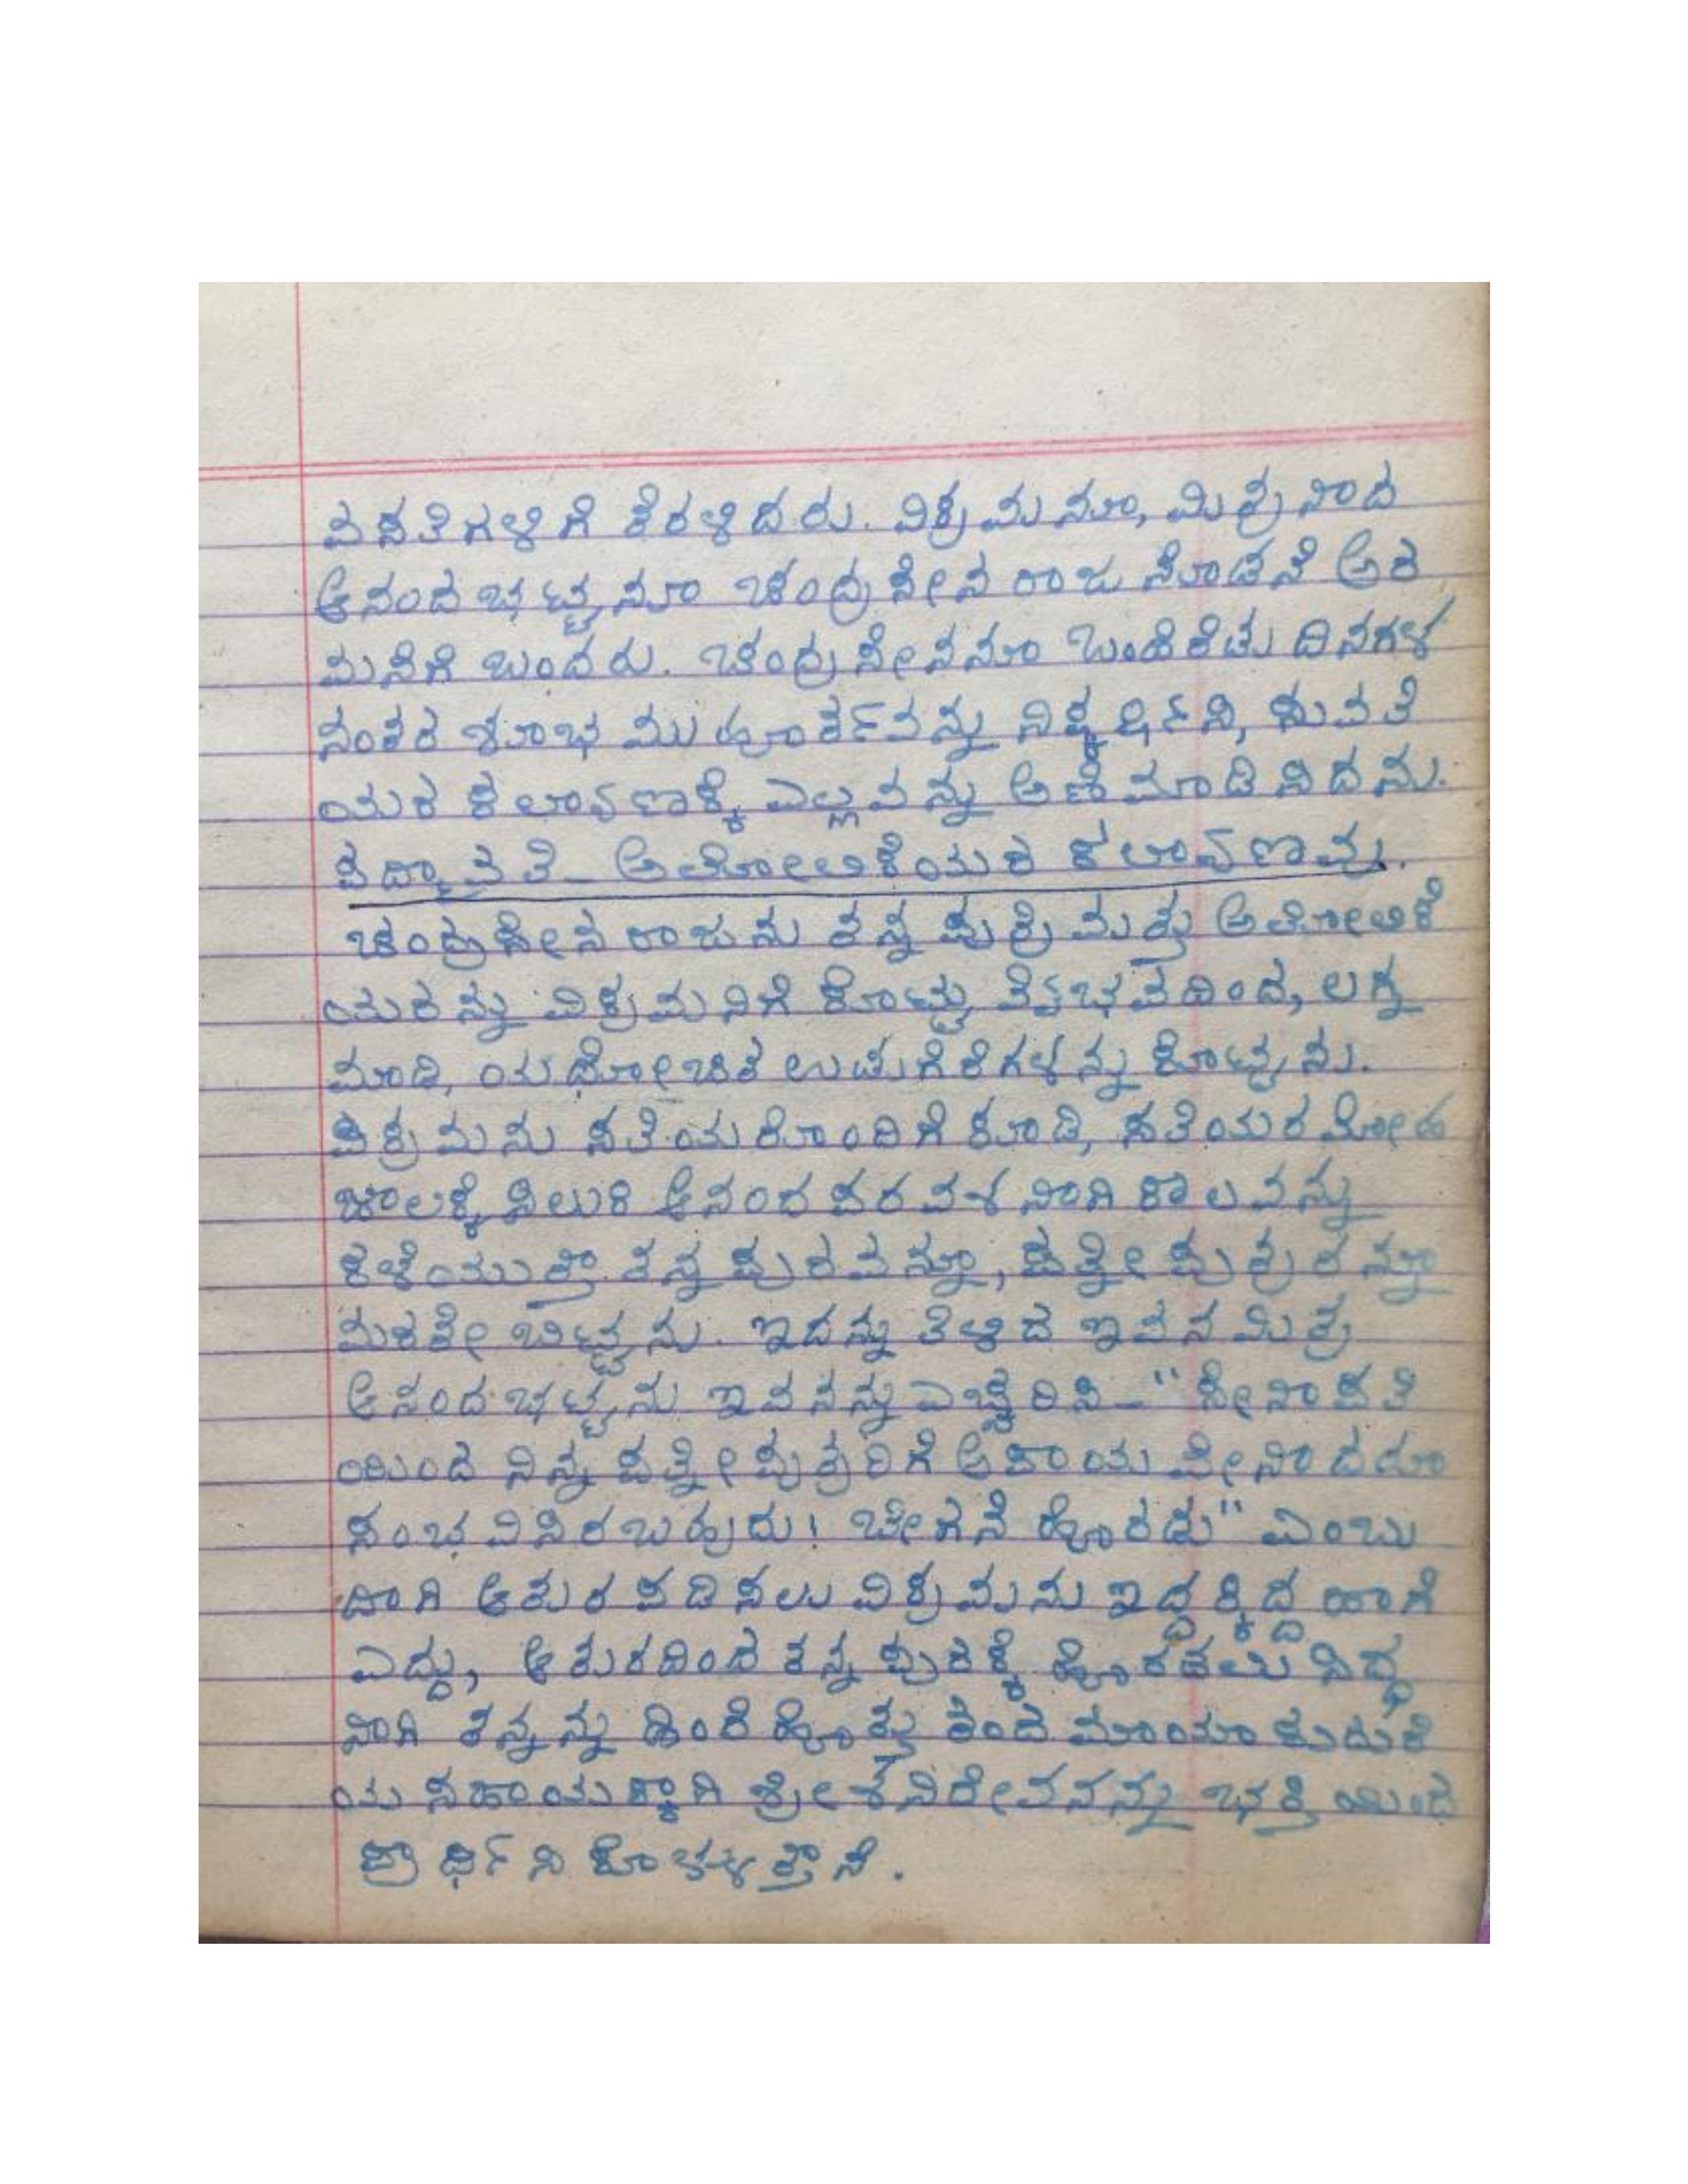 ವಸತಿಗಳಿಗೆ ತೆರಳಿದರು. ವಿಕ್ರಮನೂ, ಮಿತ್ರನಾದ
ಆನಂದ ಭಟ್ಟನೂ ಚಂದ್ರಸೇನ ರಾಜನೊಡನೆ ಅರ
ಮನೆಗೆ ಬಂದರು. ಚಂದ್ರಸೇನನೂ ಒಂದೆರೆಡು ದಿನಗಳ
ನಂತರ ಶೂಭ ಮುಹೂರ್ತವನ್ನು ಯುವತಿ
ಯರ ಕಲ್ಯಾಣಕ್ಕೆ ಎಲ್ಲವನ್ನು ಅಣಿಮಾಡಿಸಿದನು.
ಪದ್ಮಾವತಿ - ಅಲೋಲಿಕೆಯರ ಕಲ್ಯಾಣವು.
ಚಂದ್ರಸೇನ ರಾಜನು ತನ್ನ ಪುತ್ರಿ ಮತ್ತು ಅಲೋಲಿಕೆ
ಯರನ್ನು ವಿಕ್ರಮನಿಗೆ ಕೊಟ್ಟು ವೈಭವದಿಂದ, ಲಗ್ನ
ಮಾಡಿ, ಯಥೋಚಿತ ಉಡುಗೆರೆಗಳನ್ನು ಕೊಟ್ಟನು.
ವಿಕ್ರಮನು ಸತಿಯರೊಂದಿಗೆ ಕೂಡಿ, ಸತಿಯರ ಮೋಹ
ಜಾಲಕ್ಕೆ ಸಿಲುಕಿ ಆನಂದ ಪರವಶನಾಗಿ ಕಾಲವನ್ನು
ಕಳೆಯುತ್ತಾ ತನ್ನ ಪುರವನ್ನೂ, ಪತ್ನೀ ಪುತ್ರರನ್ನೂ
ಮರತೇ ಬಿಟ್ಟನು. ಇದನ್ನು ತಿಳಿದ ಇವನ ಮಿತ್ರ
ಆನಂದ ಭಟ್ಟನು ಇವನನ್ನು ಎಚ್ಚೆರಿಸಿ - "ಸೇನಾಪತಿ
ಯಿಂದ ನಿನ್ನ ಪತ್ನೀ ಪುತ್ರರಿಗೆ ಅಪಾಯವೇನಾದರೂ
ಸಂಭವಿಸಿರಬಹುದು! ಬೇಗನೆ ಹೊರಡು" ಎಂಬು
ದಾಗಿ ಆತುರ ಪಡಿಸಲು ವಿಕ್ರಮನು ಇದ್ದಕ್ಕಿದ್ದ ಹಾಗೆ
ಎದ್ದು, ಆತುರದಿಂದ ತನ್ನ ಪುರಕ್ಕೆ ಹೊರಡಲು ಸಿದ್ಧ
ನಾಗಿ ತನ್ನನ್ನು ಹಿಂದೆ ಹೊತ್ತು ತಂದ ಮಾಯಾ ಕುದುರೆ
ಯ ಸಹಾಯಕ್ಕಾಗಿ ಶ್ರೀ ಶನಿದೇವನನ್ನು ಭಕ್ತಿಯಿಂದ
ಪ್ರಾರ್ಥಿಸಿ ಕೊಳ್ಳುತ್ತಾನೆ.